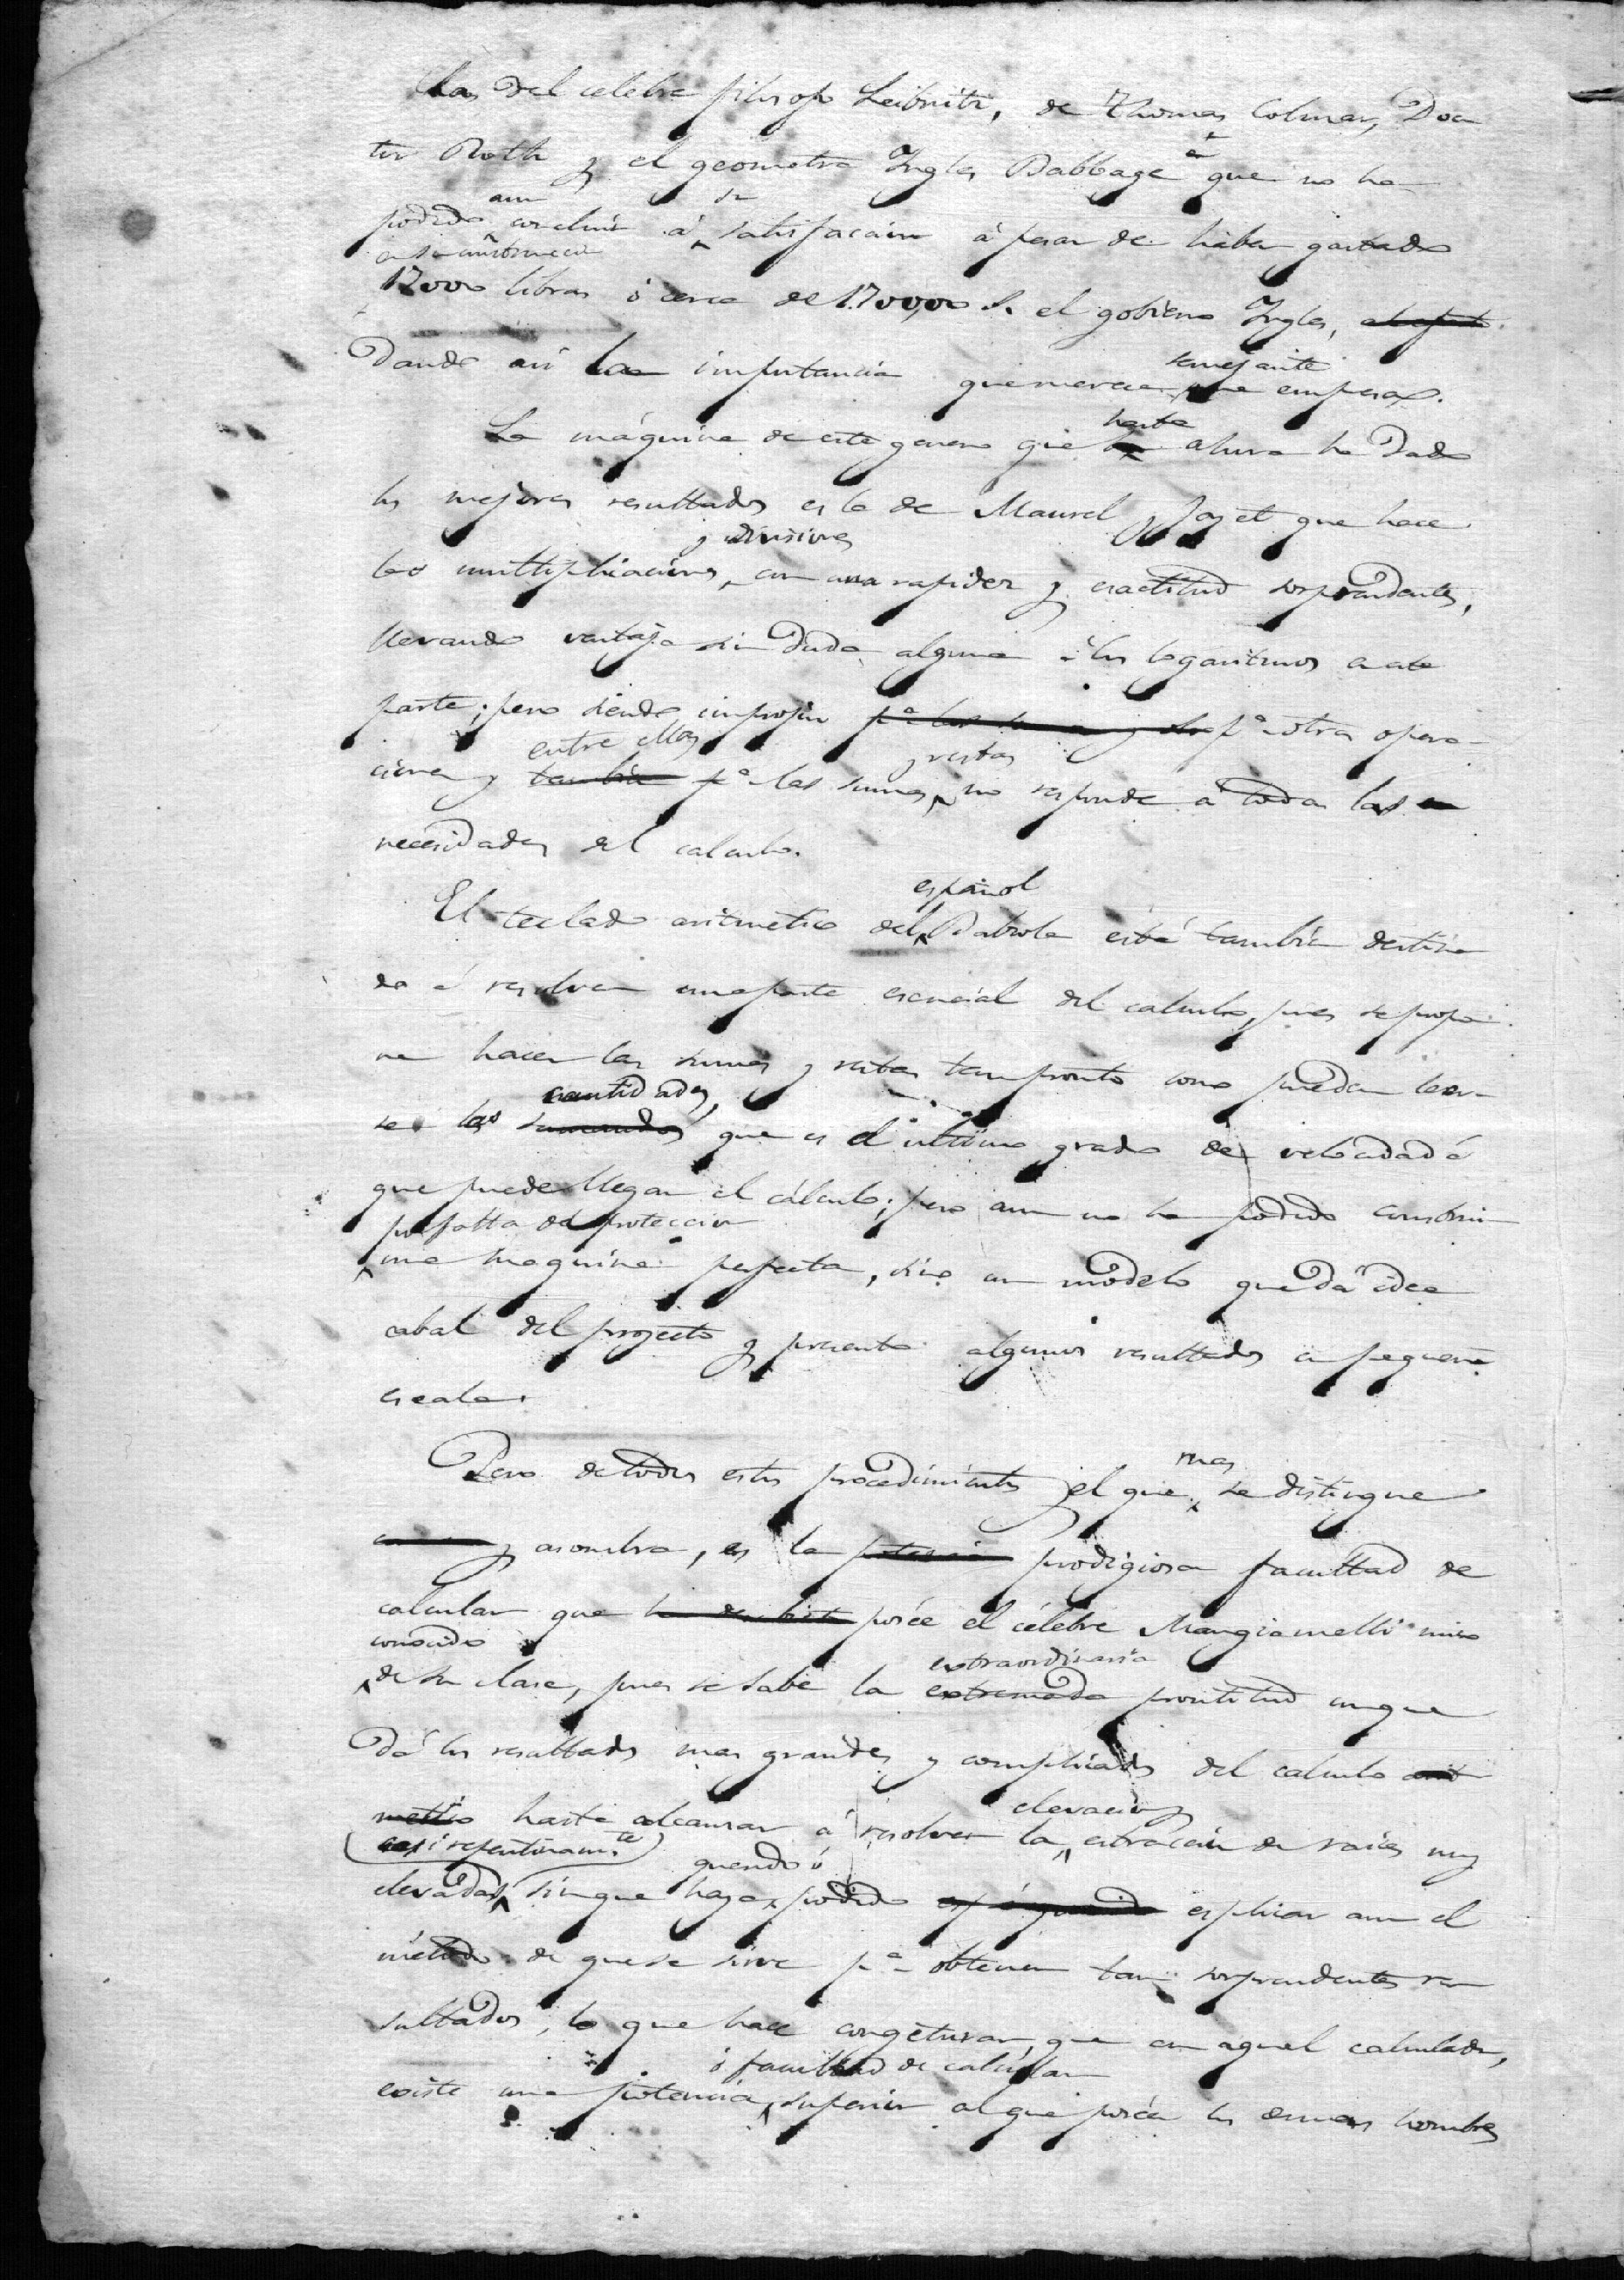 las del celebre filosofo Leibnitz, de Thomas Colmar, Doc
tor Roth y el geometra Ingles Babbage que no ha
aun su
podido concluir á satisfacion á pesar de haber gastado
en su construccion
17000 libras ó cerca de 1.700,000 r. el gobierno Ingles,
semejante
dando asi la importancia que merece empresa.
hasta
La máquina de este genero que ahora ha dado
los mejores resultados es la de Maurel y Jayet que hace
y divisiones
las multiplicaciones, con una rapidez y exactitud sorprendentes,
llevando ventaja sin duda alguna á los logaritmos en esta
parte; pero siendo impropia pª otras opera
entre ellas y restas
ciones y tambien pª las sumas, no responde á todas las
necesidades del calculo.
español
El teclado aritmetico del Dabrola está tambien destina
do á resolver una parte esencial del calculo, pues se propo
ne hacer las sumas y restas tan pronto como puedan leer
cantidades,
se las sumandos que es el ultimo grado de velocidad á
que puede llegar el cálculo; pero aun no ha podido construir
por falta de proteccion
una maquina perfecta, sino un modelo que dá idea
cabal del proyecto y presenta algunos resultados en pequeña
escala.
mas
Pero de todos estos procedimientos el que se distingue
y asombra, es la potencia prodigiosa facultad de
calcular que posée el célebre Mangiamelli unico
conocido extraordinaria
de su clase, pues se sabe la extremada prontitud con que
dá los resultados mas grandes y complicados del calculo arit
elevacion y
metico hasta alcanzar á resolver la extraccion de raices muy
(casi repentinamte) querido ó
elevadas, sin que haya podido esplicar aun el
método de que se sirve pª obtener tan sorprendentes re
sultados, lo que hace congeturar, que en aquel calculador,
ó facultad de calcular
existe una potencia superior al que posée los demas hombres